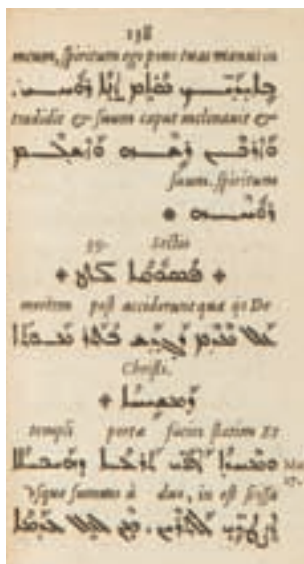 138
meum, spiritum ego pono tuas manus in
ܒܐܝܕܝ̈ܟ ܣܐܡ ܐܢܐ ܪܘܚܝ.
tradidit & suum caput inclinauit &
ܘܐܪܟܢ ܪܫܗ ܘܐܫܠܡ
suum. spiritum
ܪܘܚܗ
39. Sectio
mortem post acciderunt quæ iis De
ܒܬܪ ܡܘܬܐ
Christi.
ܕܡܫܝܚܐ
templi portæ facies statim Et
ܐܦܝ̈ ܬܪܥܐ ܕܗܝܟܠܐ
Ma
27.
Vsque summo à duo, in est scissa
ܐܨܛܪܝ ܠܬܪܝܢ. ܡܢ ܠܥܠ ܥܕܡܐ